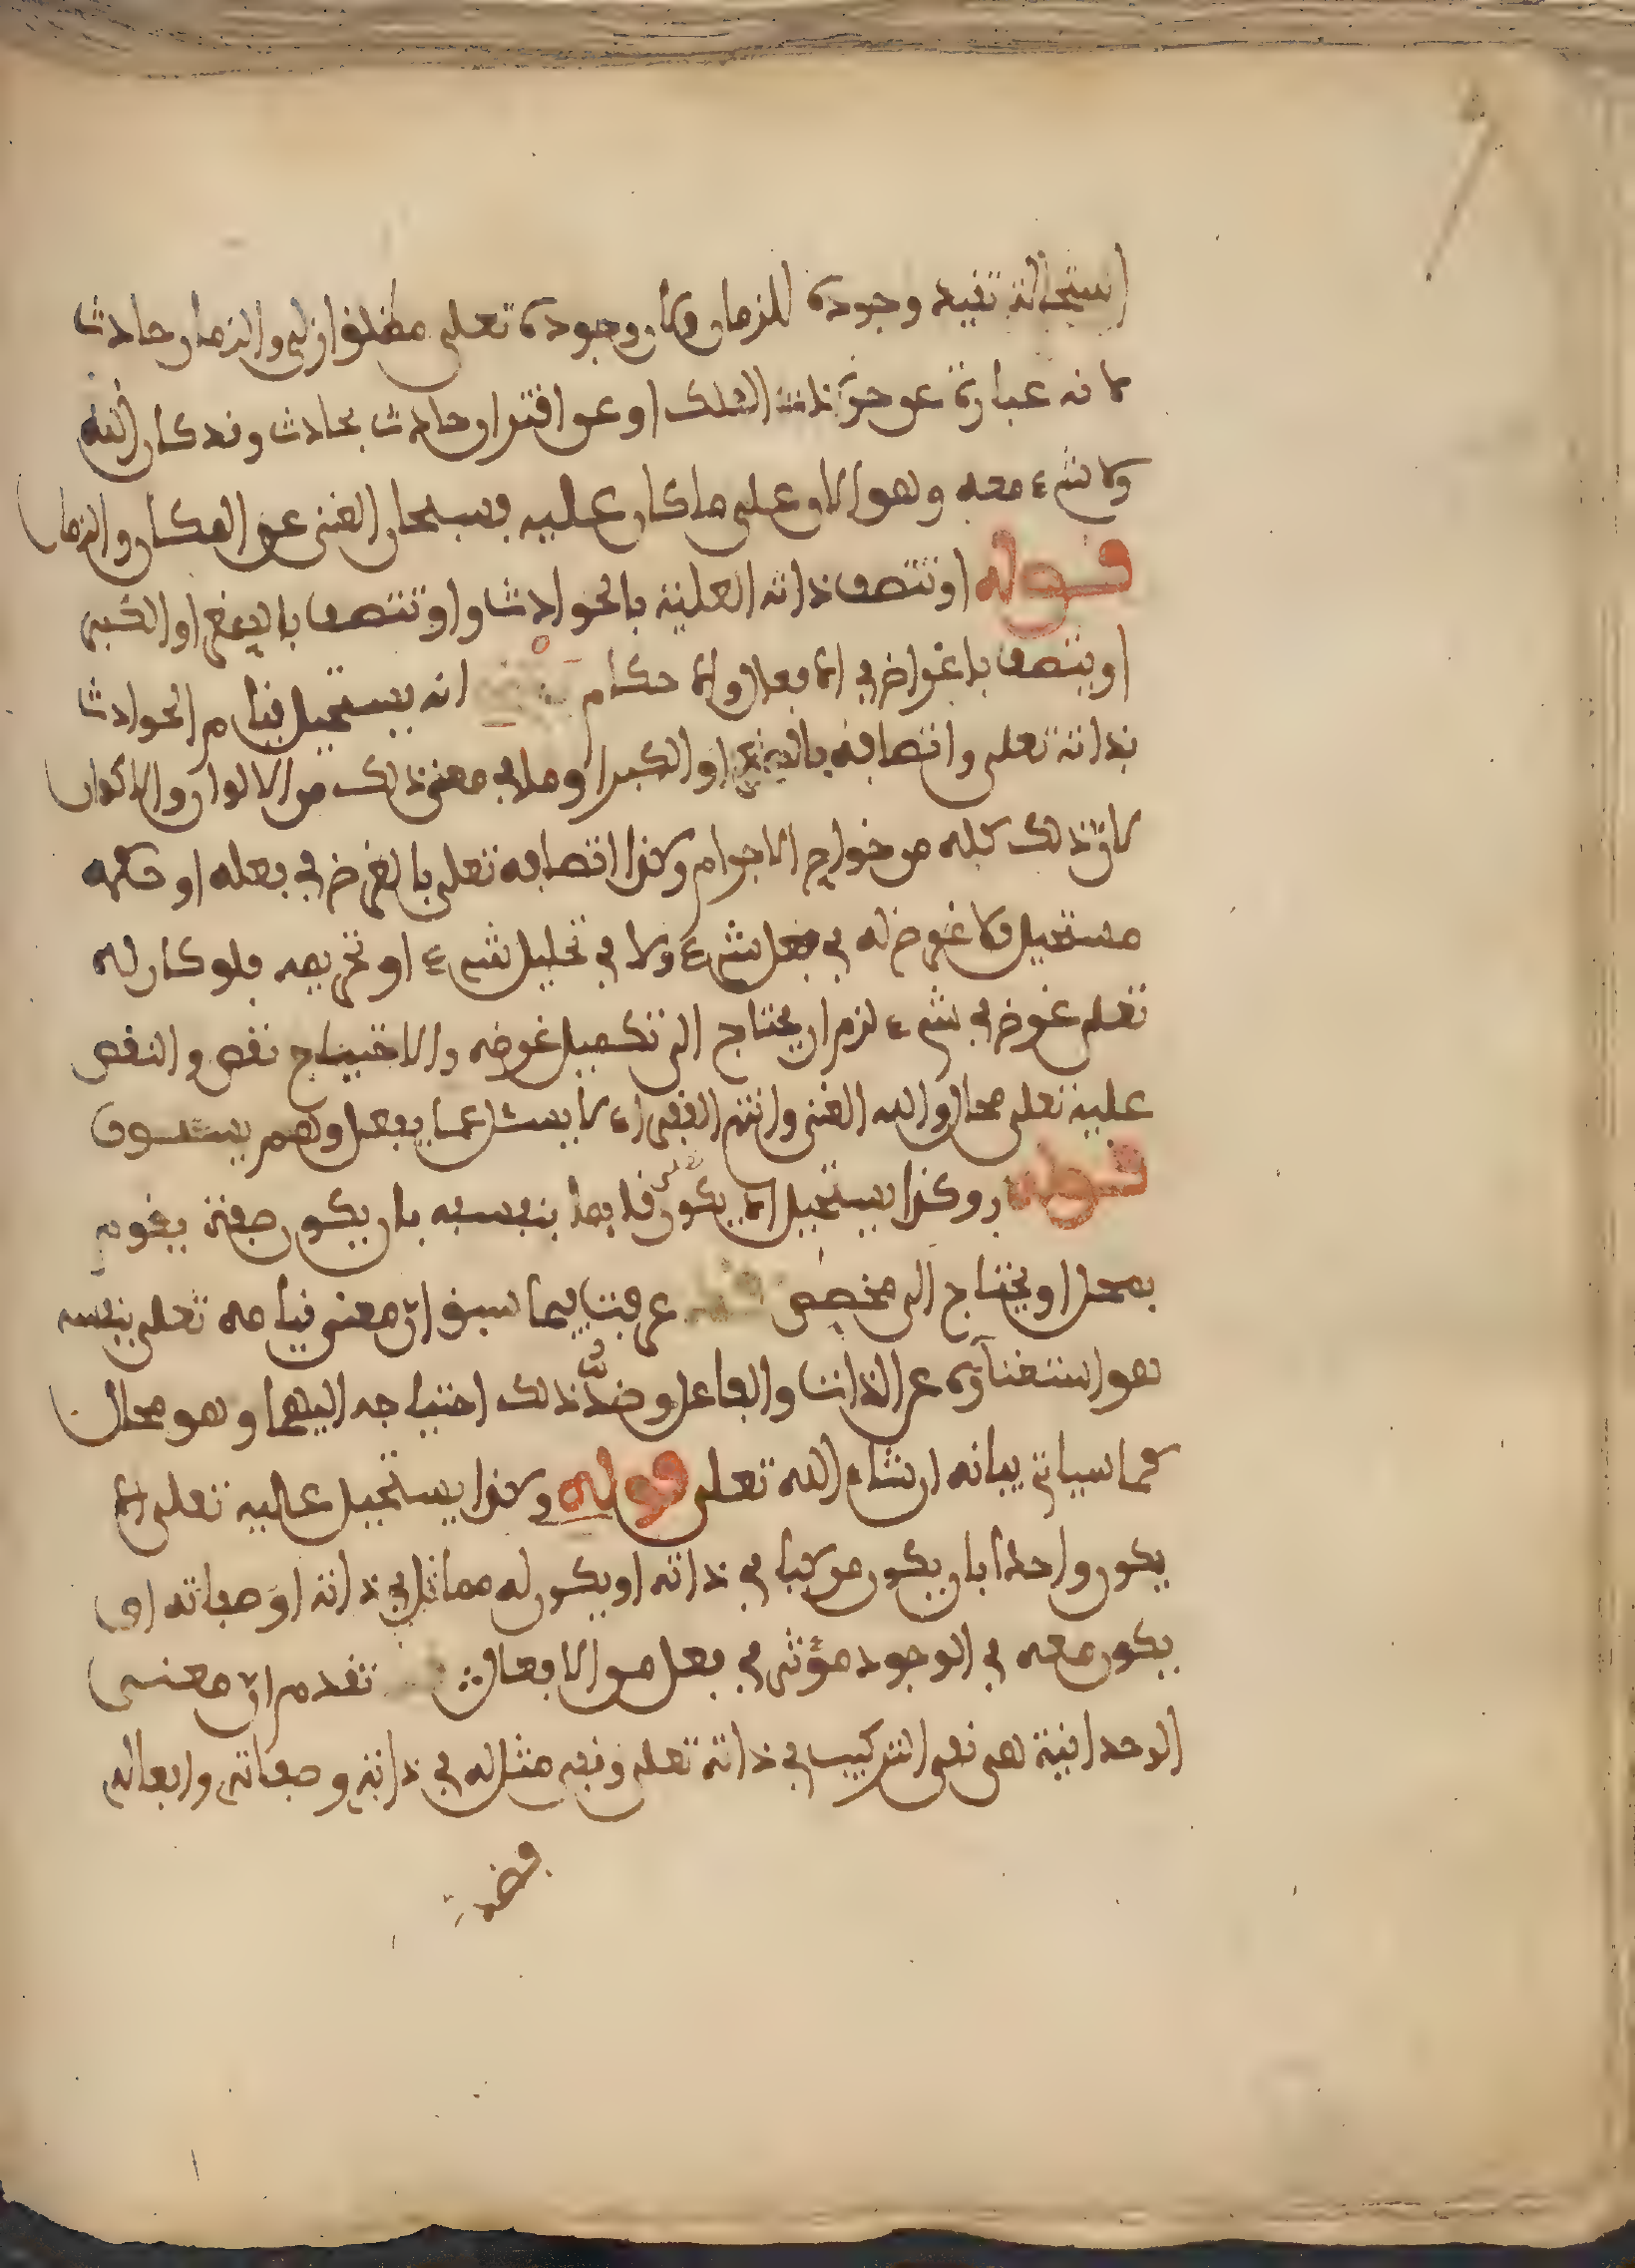 استحالة تقييد وجوده للزمان فلان وجوده تعلى مطلق ازلي والزمان حادث
لانه عبارة عن حركة الفلك او عن اقتران حادث بحادث وقد كان الله
ولا شيء معه وهو الان على ما كان عليه فسبحان الغني عن المكان والزمان
قوله او تتصف ذاته العلية بالحوادث او تتصف بالصغر او الكبر
او يتصف باغراض في الافعال والاحكام انه يستحيل قيام الحوادث
بذاته تعلى واتصافه بالصغر او الكبر او ما في معنى ذلك من الالوان والاكوان
لان ذلك كله من خواص الاجرام وكذا اتصافه تعلى بالغرض في فعله او حكمه
مستحيل فلا غرض له في فعل شيء ولا في تحليل شيء او تحريمه فلو كان له
تعلى غرض في شيء لزم ان يحتاج الى تكميل غرضه والاحتياج نقص والنقص
عليه تعلى محال والله الغني وانتم الفقراء لا يسئل عما يفعل وهم يسئلون
قوله وكذا يستحيل ان لا يكون تعلى قايما بنفسه بان يكون صفة يقوم
بمحل او يحتاج الى مخصص عرفت فيما سبق ان معنى قيامه تعلى بنفسه
هو استغناؤه عن الذات والفاعل وضد ذلك احتياجه اليهما وهو محال
كما سياتي بيانه ان شاء الله تعلى قوله وكذا يستحيل عليه تعلى ان لا
يكون واحدا بان يكون مركبا في ذاته او يكون له مماثل في ذاته او صفاته او
يكون معه في الوجود مؤثر في فعل من الافعال تقدم ان معنى
الوحدانية هي نفي التركيب في ذاته تعلى ونفي مثل له في ذاته وصفاته وافعاله
فضد